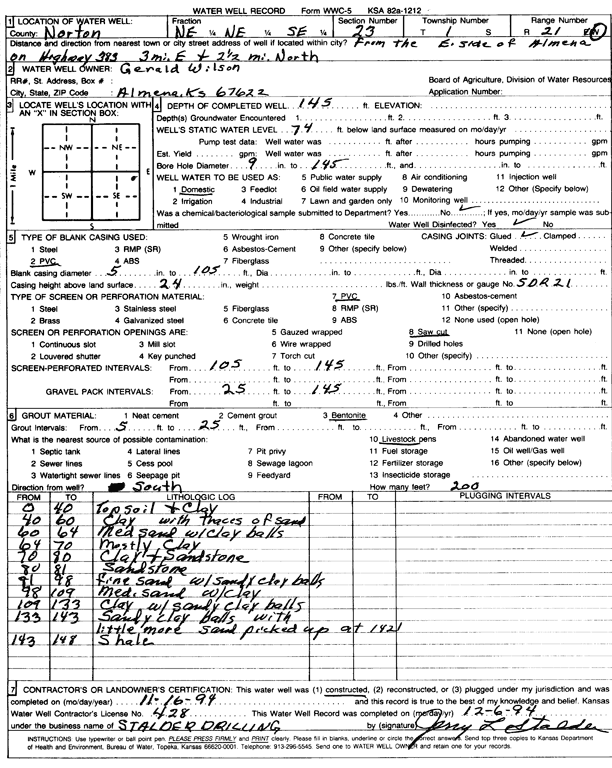 WATER WELL RECORD Form WWC-5 KSA 82a-1212
1 LOCATION OF WATER WELL: Fraction Section Number Township Number Range Number
County: Norton NE ¼ NE ¼ SE ¼ 23 T 1 S R 21 E/W
Distance and direction from nearest town or city street address of well if located within city? From the E. side of Almena
on Highway 383 3 mi. E + 2½ mi. North
2 WATER WELL OWNER: Gerald Wilson
RR#, St. Address, Box # : Board of Agriculture, Division of Water Resources
City, State, ZIP Code : Almena, Ks 67622 Application Number:
3 LOCATE WELL'S LOCATION WITH AN "X" IN SECTION BOX:
N
NW NE
W E
SW SE
S
1 Mile
4 DEPTH OF COMPLETED WELL 145 ft. ELEVATION:
Depth(s) Groundwater Encountered 1. ft. 2. ft. 3. ft.
WELL'S STATIC WATER LEVEL 74 ft. below land surface measured on mo/day/yr
Pump test data: Well water was ft. after hours pumping gpm
Est. Yield gpm: Well water was ft. after hours pumping gpm
Bore Hole Diameter 9 in. to 145 ft., and in. to ft.
WELL WATER TO BE USED AS: 5 Public water supply 8 Air conditioning 11 Injection well
1 Domestic 3 Feedlot 6 Oil field water supply 9 Dewatering 12 Other (Specify below)
2 Irrigation 4 Industrial 7 Lawn and garden only 10 Monitoring well
Was a chemical/bacteriological sample submitted to Department? Yes No ✓; If yes, mo/day/yr sample was sub-
mitted Water Well Disinfected? Yes ✓ No
5 TYPE OF BLANK CASING USED: 5 Wrought iron 8 Concrete tile CASING JOINTS: Glued ✓ Clamped
1 Steel 3 RMP (SR) 6 Asbestos-Cement 9 Other (specify below) Welded
2 PVC 4 ABS 7 Fiberglass Threaded
Blank casing diameter 5 in. to 105 ft., Dia in. to ft., Dia in. to ft.
Casing height above land surface 24 in., weight lbs./ft. Wall thickness or gauge No. SDR 21
TYPE OF SCREEN OR PERFORATION MATERIAL: 7 PVC 10 Asbestos-cement
1 Steel 3 Stainless steel 5 Fiberglass 8 RMP (SR) 11 Other (specify)
2 Brass 4 Galvanized steel 6 Concrete tile 9 ABS 12 None used (open hole)
SCREEN OR PERFORATION OPENINGS ARE: 5 Gauzed wrapped 8 Saw cut 11 None (open hole)
1 Continuous slot 3 Mill slot 6 Wire wrapped 9 Drilled holes
2 Louvered shutter 4 Key punched 7 Torch cut 10 Other (specify)
SCREEN-PERFORATED INTERVALS: From 105 ft. to 145 ft., From ft. to ft.
From ft. to ft., From ft. to ft.
GRAVEL PACK INTERVALS: From 25 ft. to 145 ft., From ft. to ft.
From ft. to ft., From ft. to ft.
6 GROUT MATERIAL: 1 Neat cement 2 Cement grout 3 Bentonite 4 Other
Grout Intervals: From 5 ft. to 25 ft., From ft. to ft., From ft. to ft.
What is the nearest source of possible contamination: 10 Livestock pens 14 Abandoned water well
1 Septic tank 4 Lateral lines 7 Pit privy 11 Fuel storage 15 Oil well/Gas well
2 Sewer lines 5 Cess pool 8 Sewage lagoon 12 Fertilizer storage 16 Other (specify below)
3 Watertight sewer lines 6 Seepage pit 9 Feedyard 13 Insecticide storage
Direction from well? South How many feet? 200
FROM TO LITHOLOGIC LOG FROM TO PLUGGING INTERVALS
0 40 Topsoil + Clay
40 60 Clay with Traces of sand
60 64 Med sand w/clay balls
64 70 Mostly Clay
70 80 Clay + Sandstone
80 81 Sandstone
81 98 fine sand w/sandy clay balls
98 109 Med. sand w/clay
109 133 Clay w/sandy clay balls
133 143 Sandy clay balls with
little more sand picked up at 142
143 148 Shale
7 CONTRACTOR'S OR LANDOWNER'S CERTIFICATION: This water well was (1) constructed, (2) reconstructed, or (3) plugged under my jurisdiction and was
completed on (mo/day/year) 11-16-94 and this record is true to the best of my knowledge and belief. Kansas
Water Well Contractor's License No. 428 This Water Well Record was completed on (mo/day/yr) 12-6-94
under the business name of STALDER DRILLING by (signature) Jerry L Stalder
INSTRUCTIONS: Use typewriter or ball point pen. PLEASE PRESS FIRMLY and PRINT clearly. Please fill in blanks, underline or circle the correct answers. Send top three copies to Kansas Department
of Health and Environment, Bureau of Water, Topeka, Kansas 66620-0001. Telephone: 913-296-5545. Send one to WATER WELL OWNER and retain one for your records.